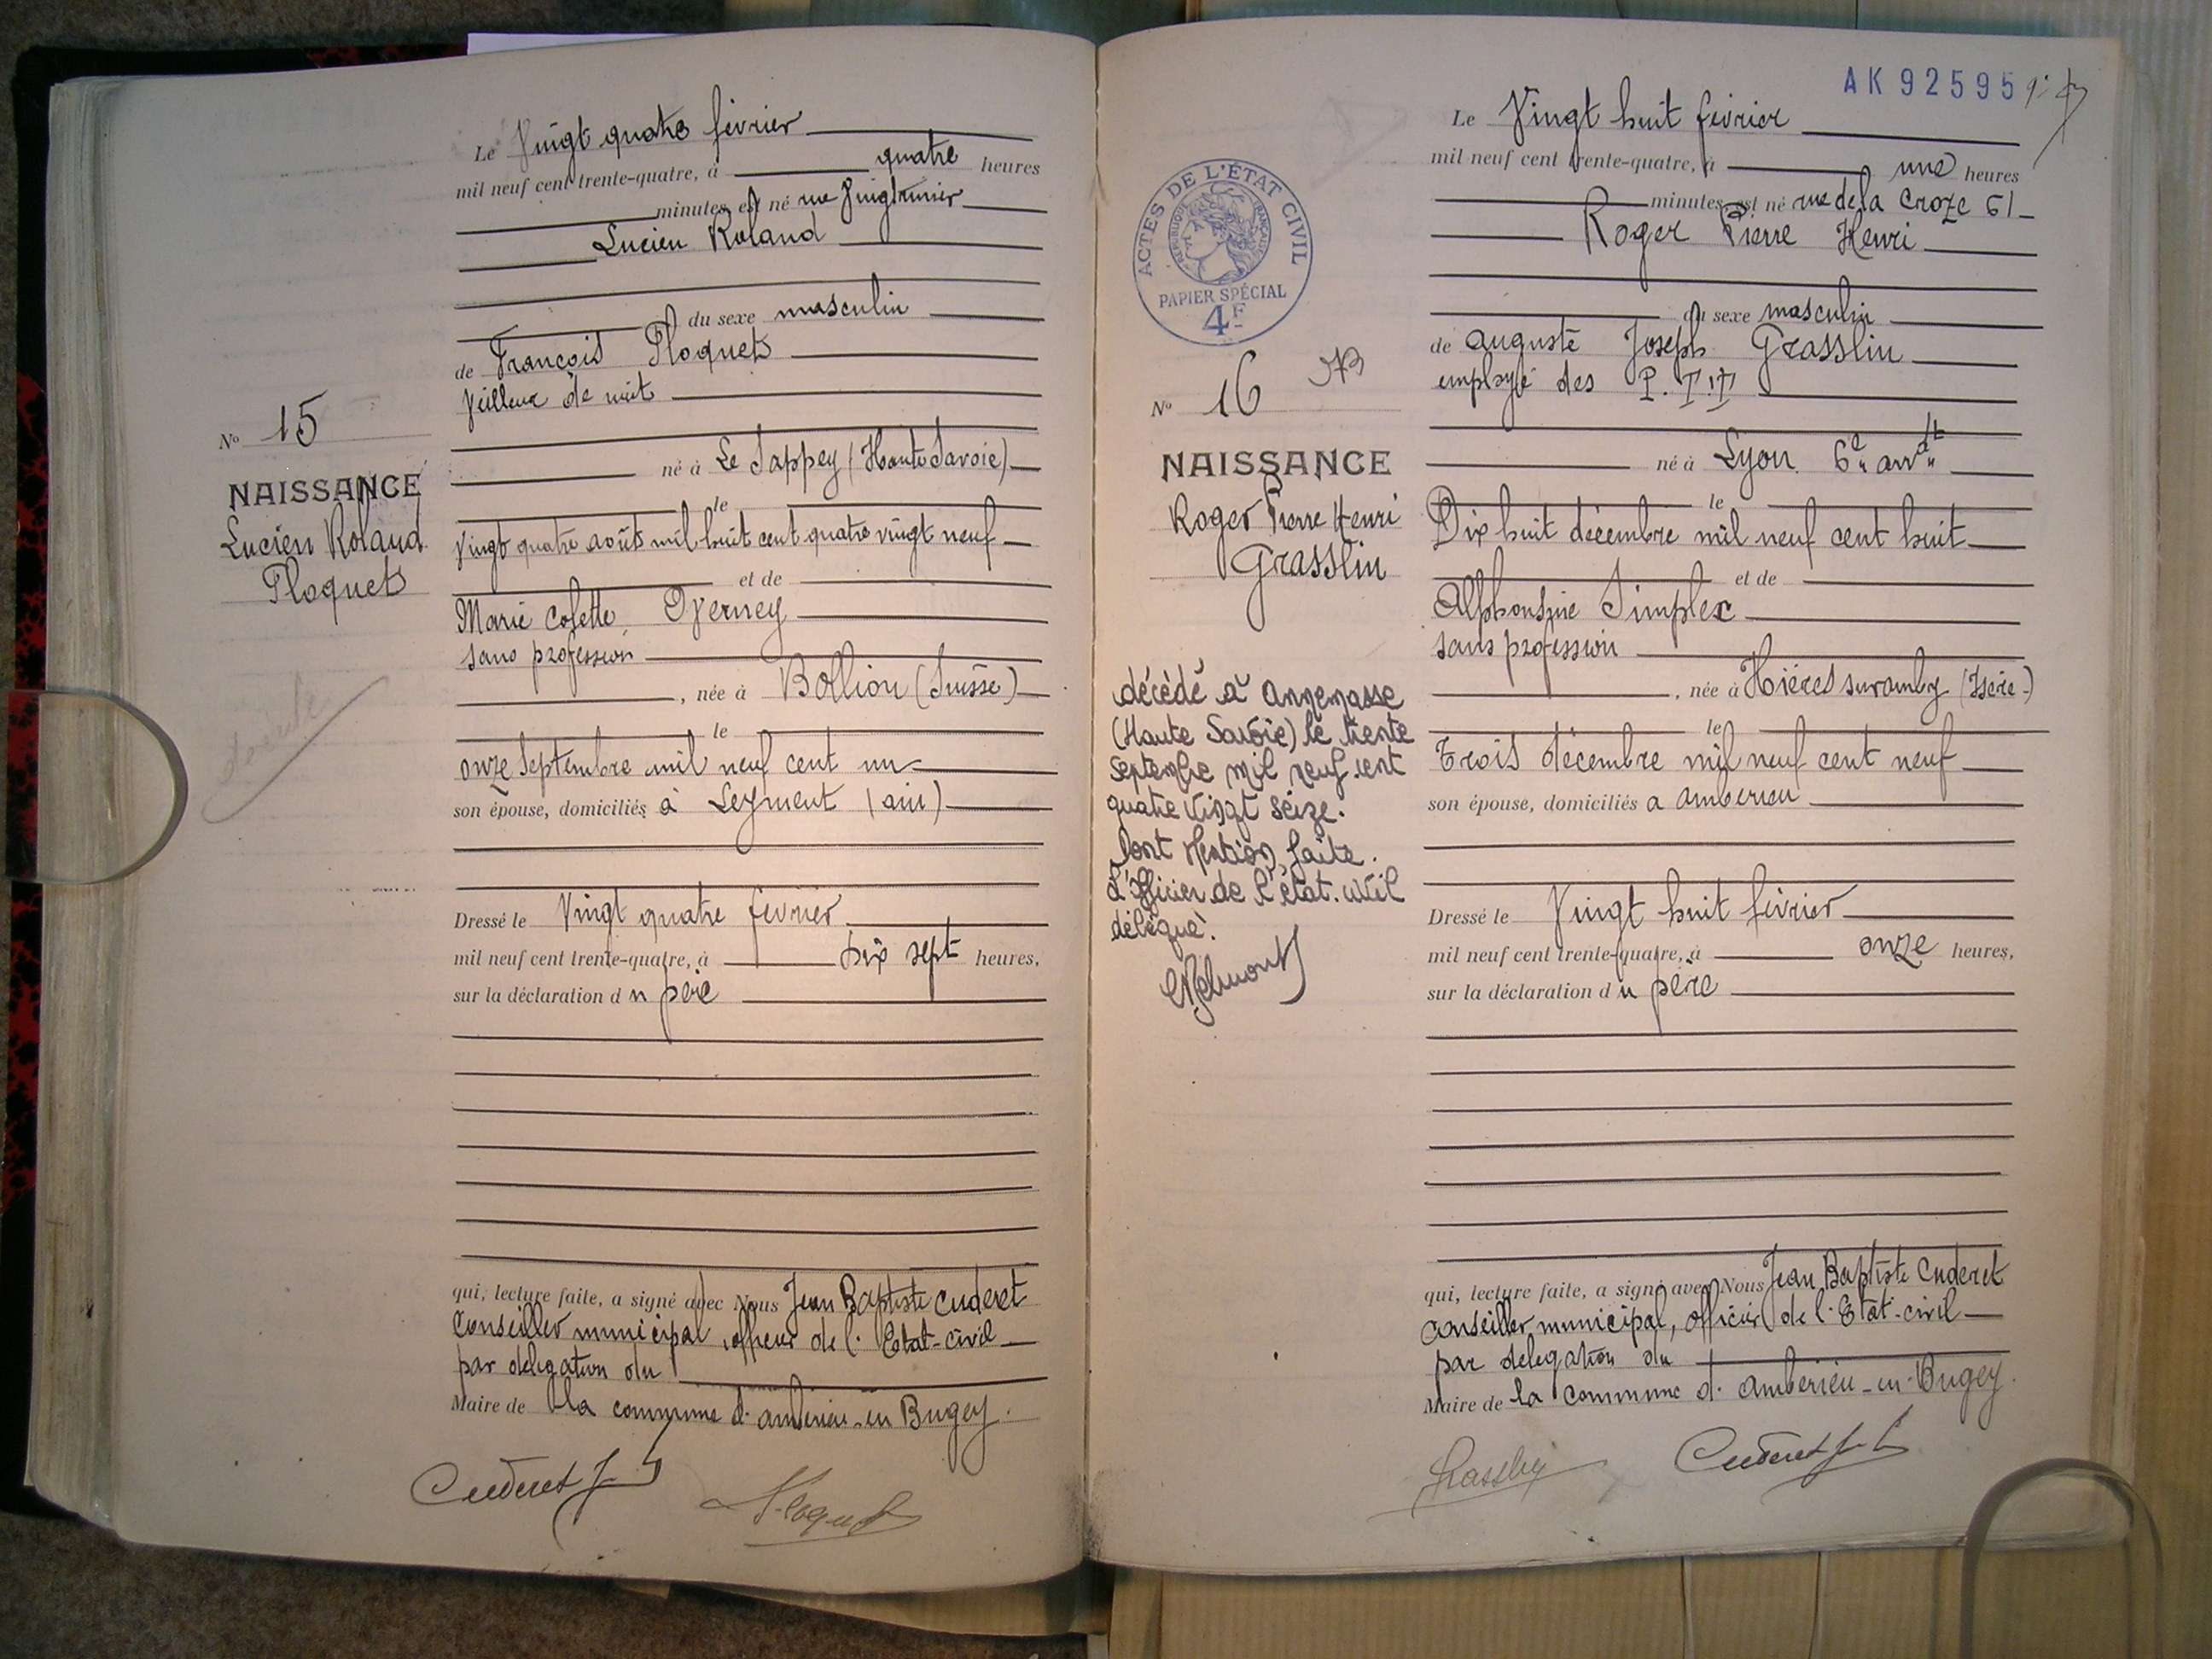 Le Vingt quatre février
mil neuf cent trente-quatre, à quatre heures
minutes, est né rue
Lucien Roland
du sexe masculin
de François Ploquet
Veilleur de nuit
né à Le Sappey (Haute Savoie)
le
Vingt quatre août mil huit cent quatre vingt neuf
et de
Marie Colette Overney
sans profession
, née à Bollion (Suisse)
le
onze Septembre mil neuf cent un
son épouse, domiciliés à Leyment (ain)
Dressé le Vingt quatre février
mil neuf cent trente-quatre, à Dix sept heures,
sur la déclaration du père
qui, lecture faite, a signé avec Nous Jean Baptiste Cuderet
Conseiller municipal, officier de l'Etat-civil
par delegation du
Maire de la commune d'ambérieu-en Bugey.
Cuderet
Ploquet
No 15
NAISSANCE
Lucien Roland
Ploquet
AK 92595
Le Vingt huit février
mil neuf cent trente-quatre, à une heures
minutes, est né rue de la Croze 61
Roger Pierre Henri
du sexe masculin
de Auguste Joseph Grasslin
employé des P.T.T
né à Lyon 6e arrdt
le
Dix huit décembre mil neuf cent huit
et de
Alphonsine Simplex
sans profession
, née à Hières sur amby (Isère)
le
Trois décembre mil neuf cent neuf
son épouse, domiciliés a amberieu
Dressé le Vingt huit février
mil neuf cent trente-quatre, à onze heures,
sur la déclaration du père
qui, lecture faite, a signé avec Nous Jean Baptiste Cuderet
conseiller municipal, officier de l'Etat-civil
par delegation du
Maire de la commune d'ambérieu-en-Bugey.
Grasslin
Cuderet
ACTES DE L'ÉTAT CIVIL
RÉPUBLIQUE FRANÇAISE
PAPIER SPÉCIAL
4F
No 16
NAISSANCE
Roger Pierre Henri
Grasslin
décédé à Annemasse
(Haute Savoie) le trente
septembre mil neuf cent
quatre vingt seize.
Dont Mention faite.
L'Officier de l'état-civil
délégué.